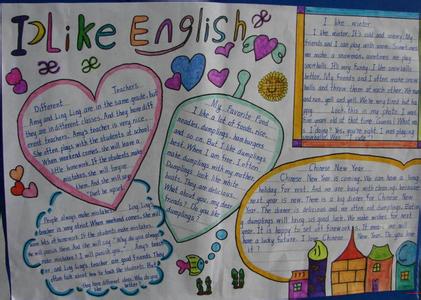 I Like English
æ æ æ
Different Teachers.
Amy and Ling Ling are in the same grade, but
they are in different classes. And they have diff
erent teachers. Amy's teacher is very nice.
She often plays with the students at school.
When weekend comes, she will leave a
little homework. If the students make
mistakes, she will forgive
them. And she will say
"Don't be again".
People always make mistakes. Ling Ling's
teacher is very strict. When weekend comes, she will
leave lots of homework. If the students make mistakes,
he will punish them. And he will say "Why do you always
make mistakes? I will punish you." Amy's teach
er, and Ling Ling's teacher are good friends. They
often talk about how to teach the students. But
they have different ideas. Who do you
better?
My Favorite Food
I like a lot of foods, rice,
noodles, dumplings, hamburgers
and so on. But I like dumplings
best. When I am free, I often
make dumplings with my mother.
Dumplings look like white
They are delicious.
What about you, my dear
friends? Do you like
dumplings?
I like winter.
I like winter. It's cold and snowy. My
friends and I can play with snow. Sometimes
we make a snowman, sometimes we play
snowballs. It's very funny. I like snowballs
better. My friends and I often make snow
balls and throw them at each other. We run
and run, yell and yell. We're very tired but ha
ppy. Look at this is my photo. I was
five years old at that time. Guess! What am
I doing? Yes, you're right. I was playing
snowballs.
Chinese New Year
Chinese New Year is coming. We can have a long
holiday for rest. And we are busy with cleaning, because
next year is new. There is a big dinner for Chinese New
Year. The dinner is delicious and we often eat dumplings. Eating
dumplings will bring us good luck. We make wishes for next
year. It is happy to set off fireworks. It means we will
have a lucky future. I love Chinese New Year. Do you love
it?